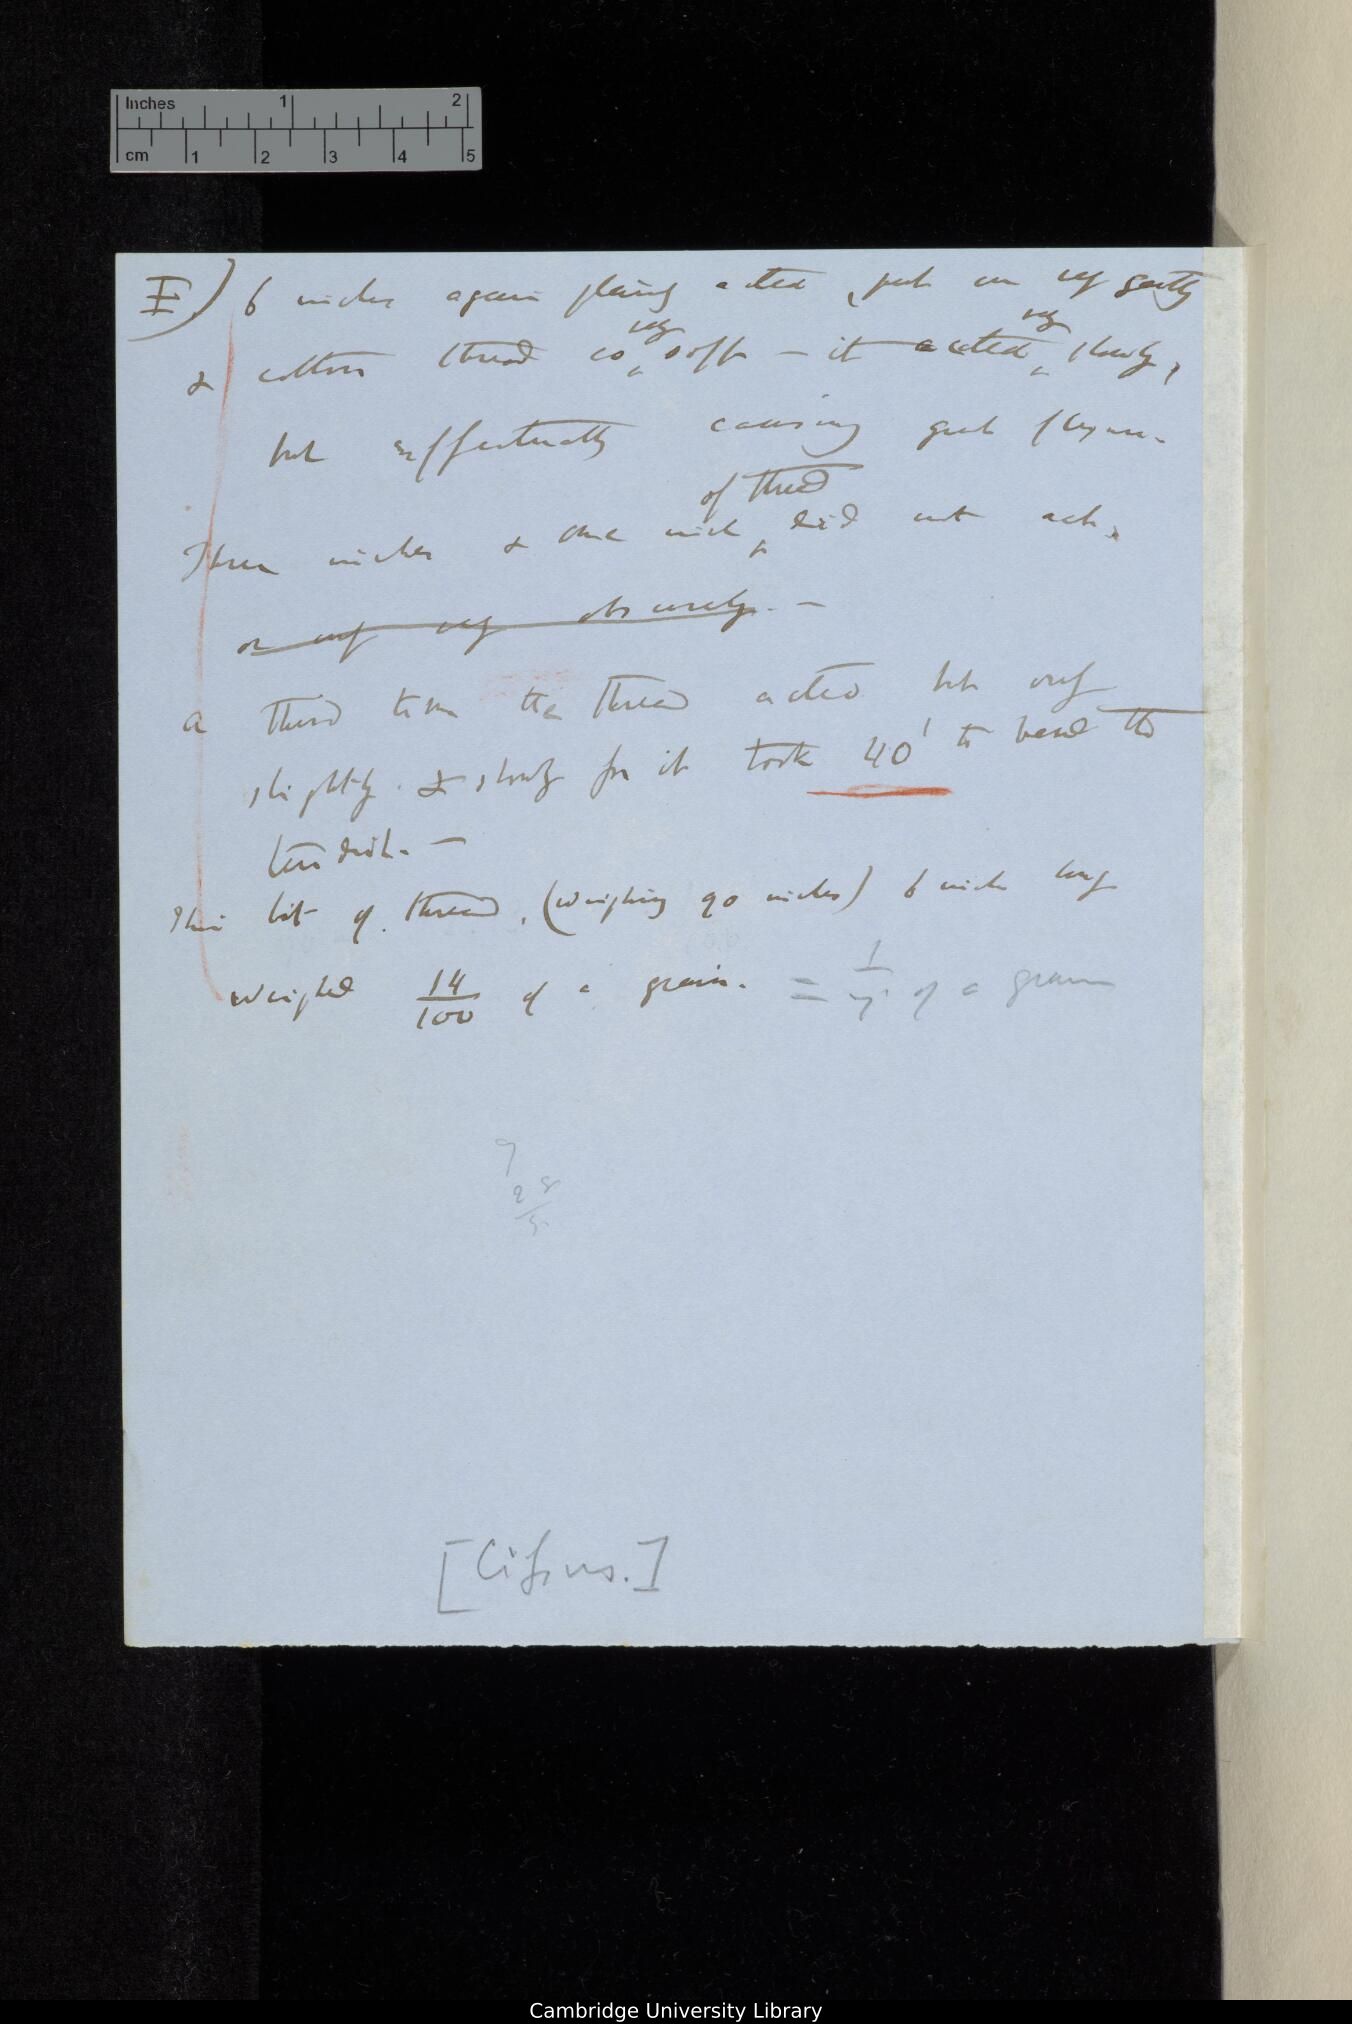 Inches 1 2
cm 1 2 3 4 5
II) 6 inches again plainly acted, put on very gently
& cotton thread so very soft — it acted very slowly,
but effectually causing great flexure.
Three inches & one inch of thread did not act,
or very very obscurely. —
A third time the thread acted but very
slightly & slowly for it took 40' to bend the
tendril. —
This bit of thread, (weighing 90 inches) 6 inch long
weighed 14/100 of a grain. = 1/7 of a grain
[Cissus.]
Cambridge University Library